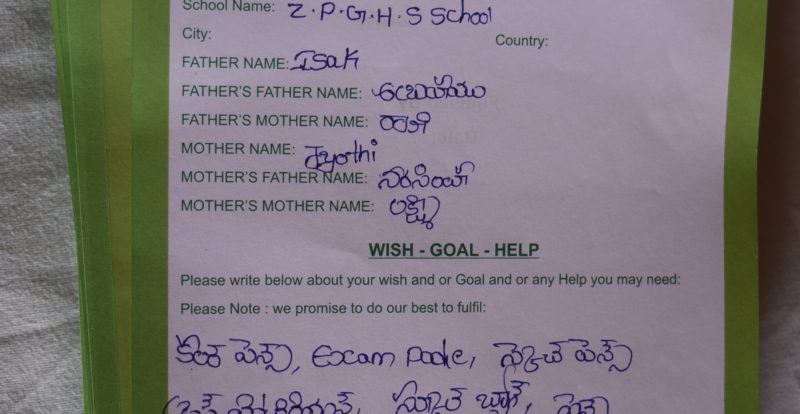 School Name: Z.P.G.H.S School
City: Country:
FATHER NAME: Isak
FATHER'S FATHER NAME:
FATHER'S MOTHER NAME: రాణి
MOTHER NAME: Jyothi
MOTHER'S FATHER NAME: నరసింహా
MOTHER'S MOTHER NAME: లక్ష్మి
WISH - GOAL - HELP
Please write below about your wish and or Goal and or any Help you may need:
Please Note : we promise to do our best to fulfil:
కలర్ పెన్స్, Excam Pade, స్కెచ్ పెన్స్
స్కూల్ బ్యాగ్,